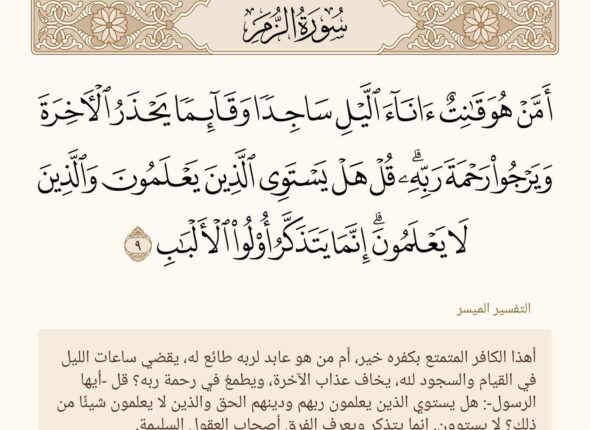 سُورَةُ الزُّمَرِ
أَمَّنْ هُوَ قَٰنِتٌ ءَانَآءَ ٱلَّيْلِ سَاجِدًا وَقَآئِمًا يَحْذَرُ ٱلْءَاخِرَةَ
وَيَرْجُوا۟ رَحْمَةَ رَبِّهِۦۗ قُلْ هَلْ يَسْتَوِى ٱلَّذِينَ يَعْلَمُونَ وَٱلَّذِينَ
لَا يَعْلَمُونَۗ إِنَّمَا يَتَذَكَّرُ أُو۟لُوا۟ ٱلْأَلْبَٰبِ ٩
التفسير الميسر
أهذا الكافر المتمتع بكفره خير، أم من هو عابد لربه طائع له، يقضي ساعات الليل
في القيام والسجود لله، يخاف عذاب الآخرة، ويطمعُ في رحمة ربه؟ قل -أيها
الرسول-: هل يستوي الذين يعلمون ربهم ودينهم الحق والذين لا يعلمون شيئًا من
ذلك؟ لا يستوون. إنما يتذكر ويعرف الفرق أصحاب العقول السليمة.